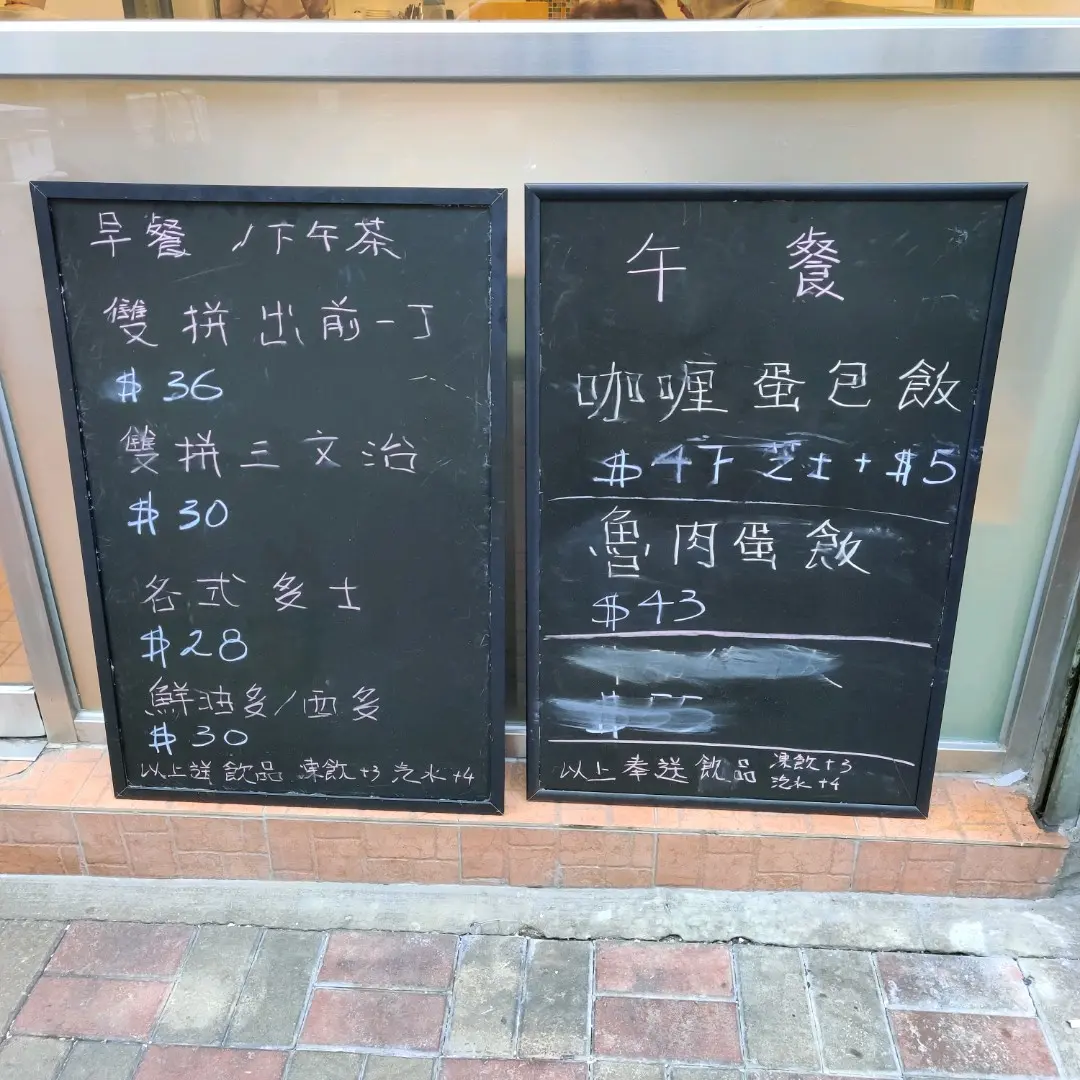 早餐 /下午茶
雙拼出前一丁
$36
雙拼三文治
$30
各式多士
$28
鮮油多/西多
$30
以上送飲品 凍飲+3 汽水+4
午餐
咖喱蛋包飯
芝士+$5
魯肉蛋飯
$43
以上奉送飲品 凍飲+3
汽水+4